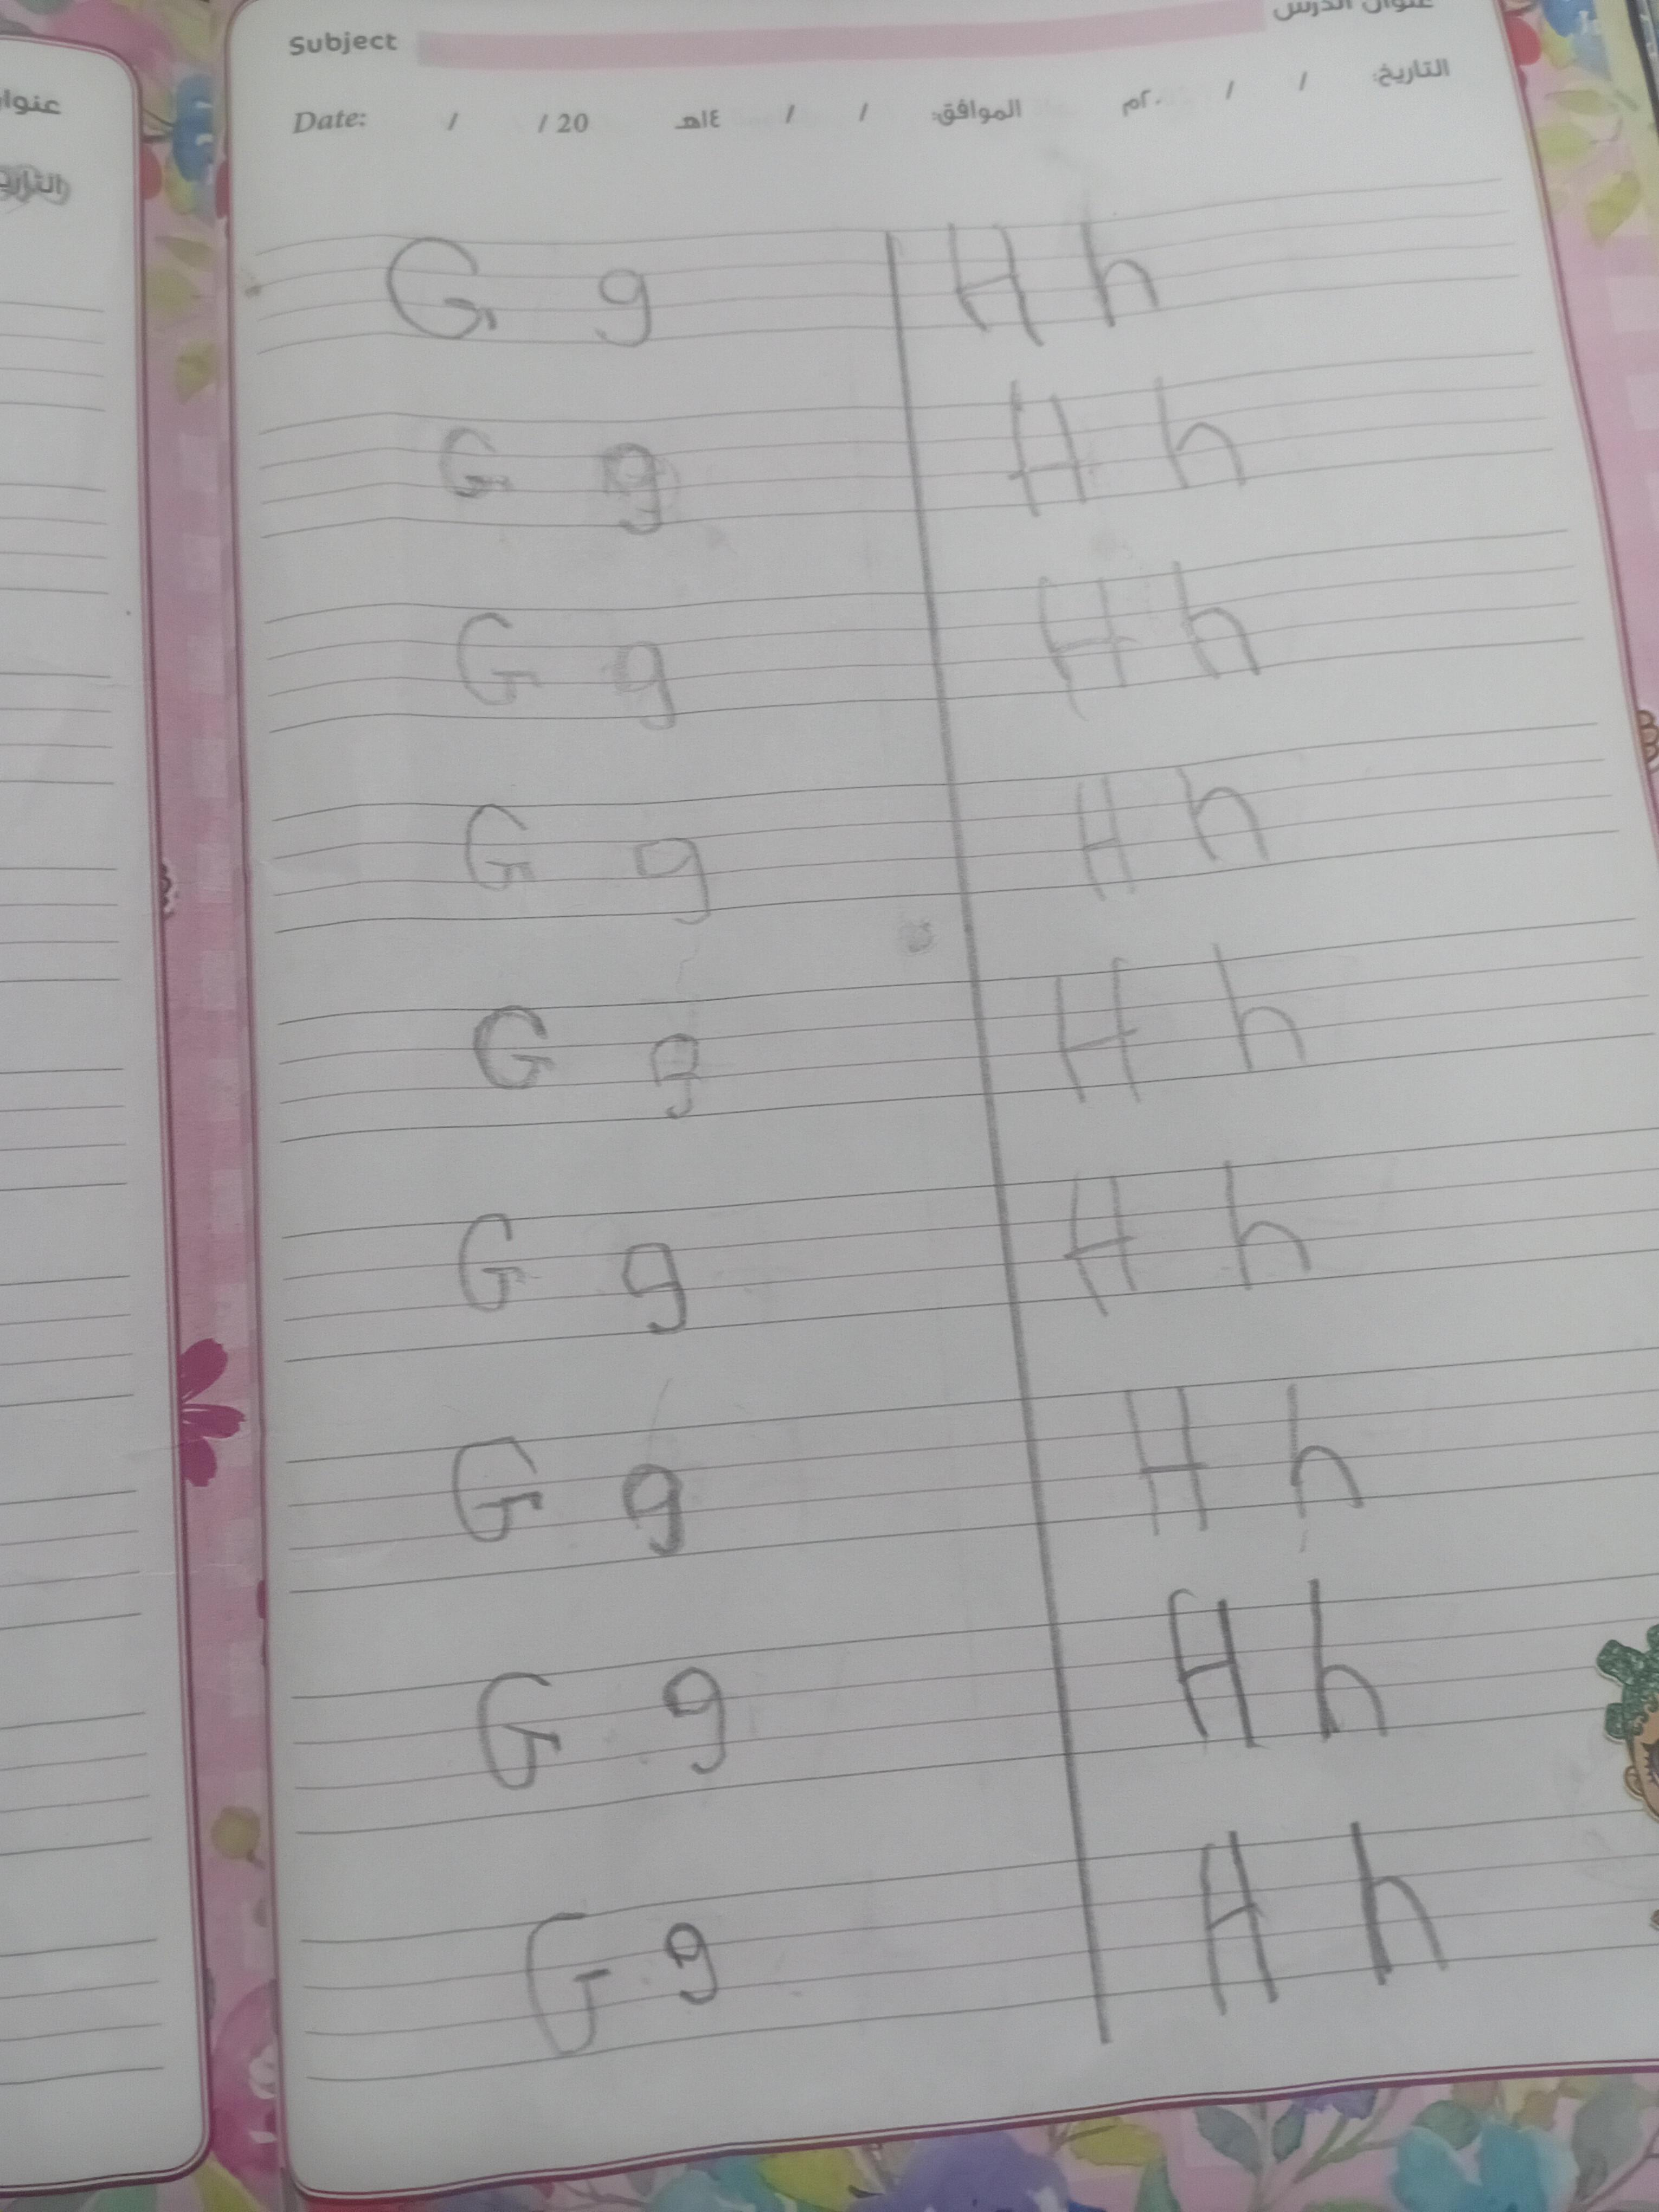 Subject عنوان الدرس
Date: / / 20 ١٤هـ / / الموافق: ٢٠م / / التاريخ:
G g H h
G g H h
G g H h
G g H h
G g H h
G g H h
G g H h
G g H h
G g H h